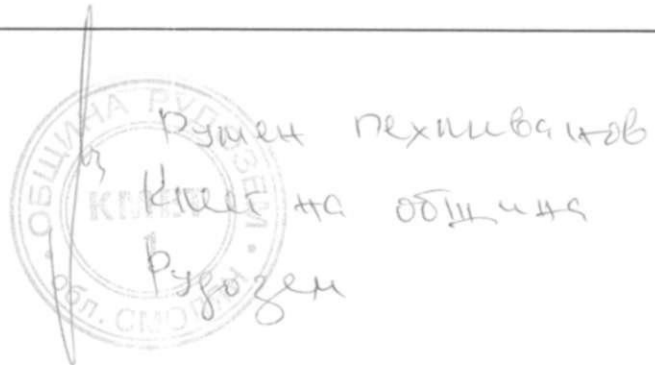 Румен Пехливанов
Кмет на община
Рудозем
ОБЩИНА РУДОЗЕМ
КМЕТ
обл. СМОЛЯН